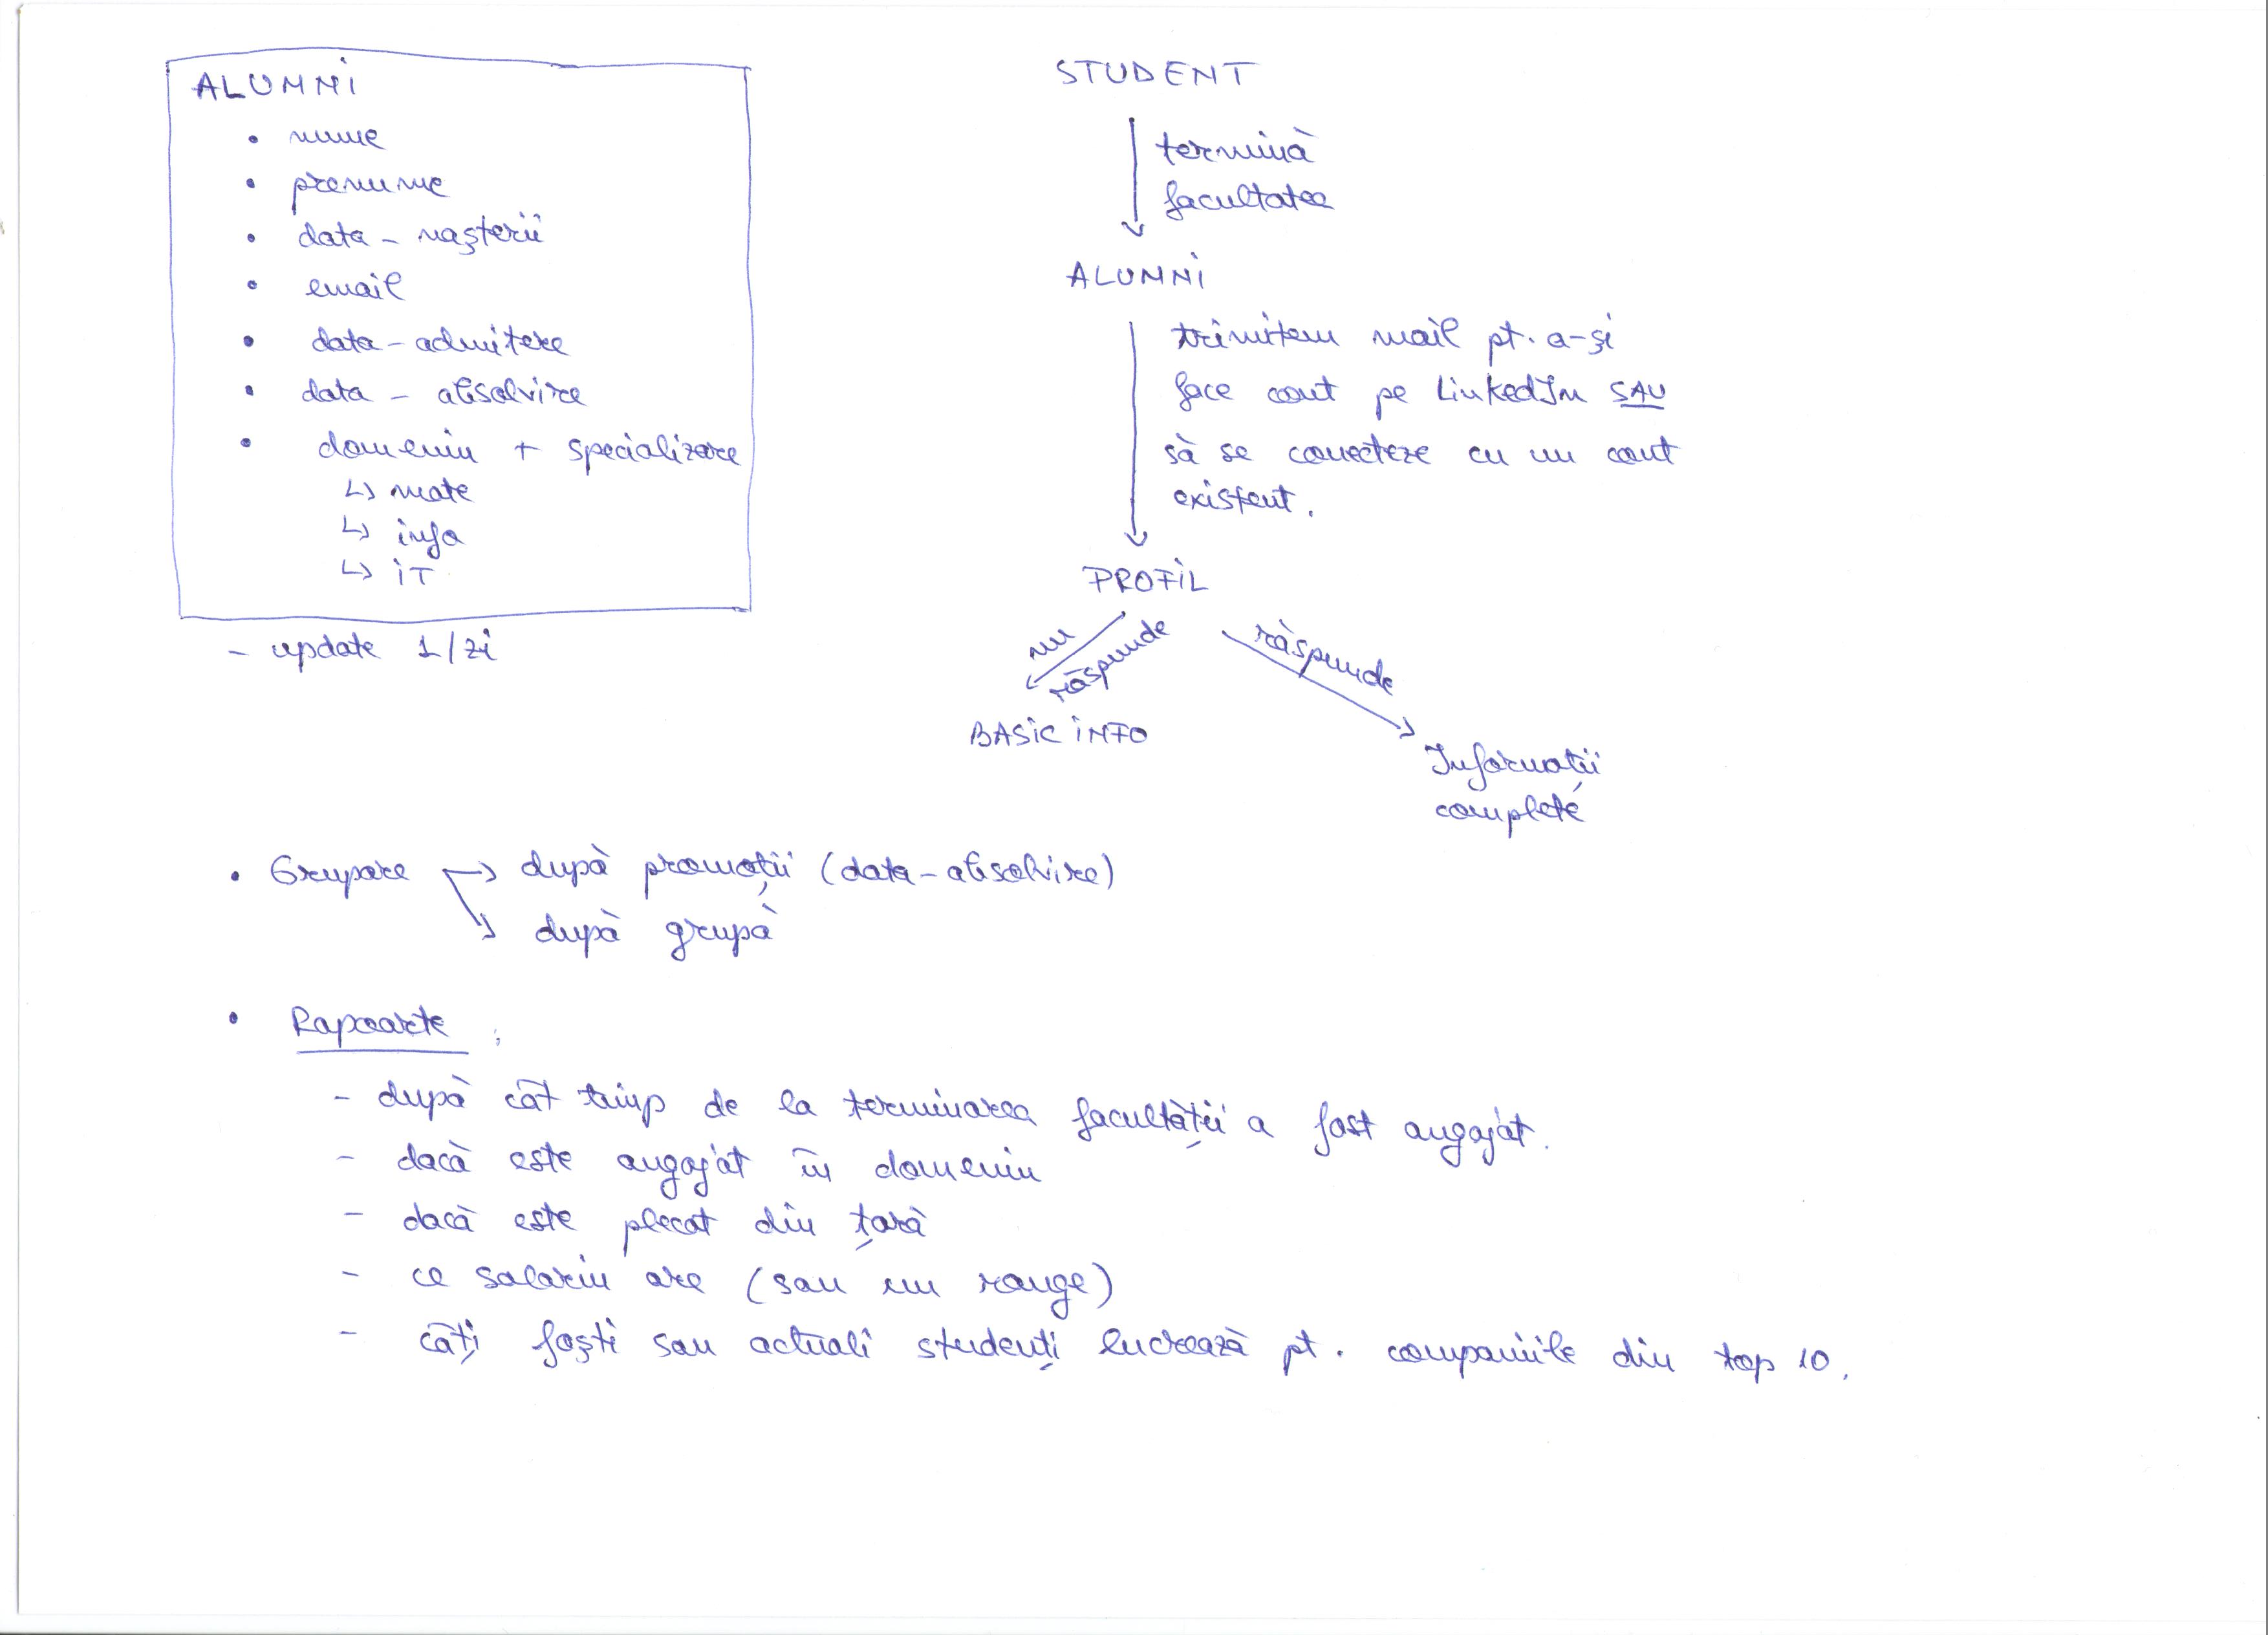 ALUMNI
• nume
• prenume
• data - nașterii
• email
• data - admitere
• data - absolvire
• domeniu + specializare
↳ mate
↳ info
↳ IT
- update 1/zi
STUDENT
termină
facultatea
ALUMNI
trimitem mail pt. a-și
face cont pe LinkedIn SAU
să se conecteze cu un cont
existent.
PROFIL
nu
răspunde
răspunde
BASIC INFO
Informații
complete
• Grupare → după promoții (data-absolvire)
după grupă
• Rapoarte :
- după cât timp de la terminarea facultății a fost angajat.
- dacă este angajat în domeniu
- dacă este plecat din țară
- ce salariu are (sau un range)
- câți foști sau actuali studenți lucrează pt. companiile din top 10.